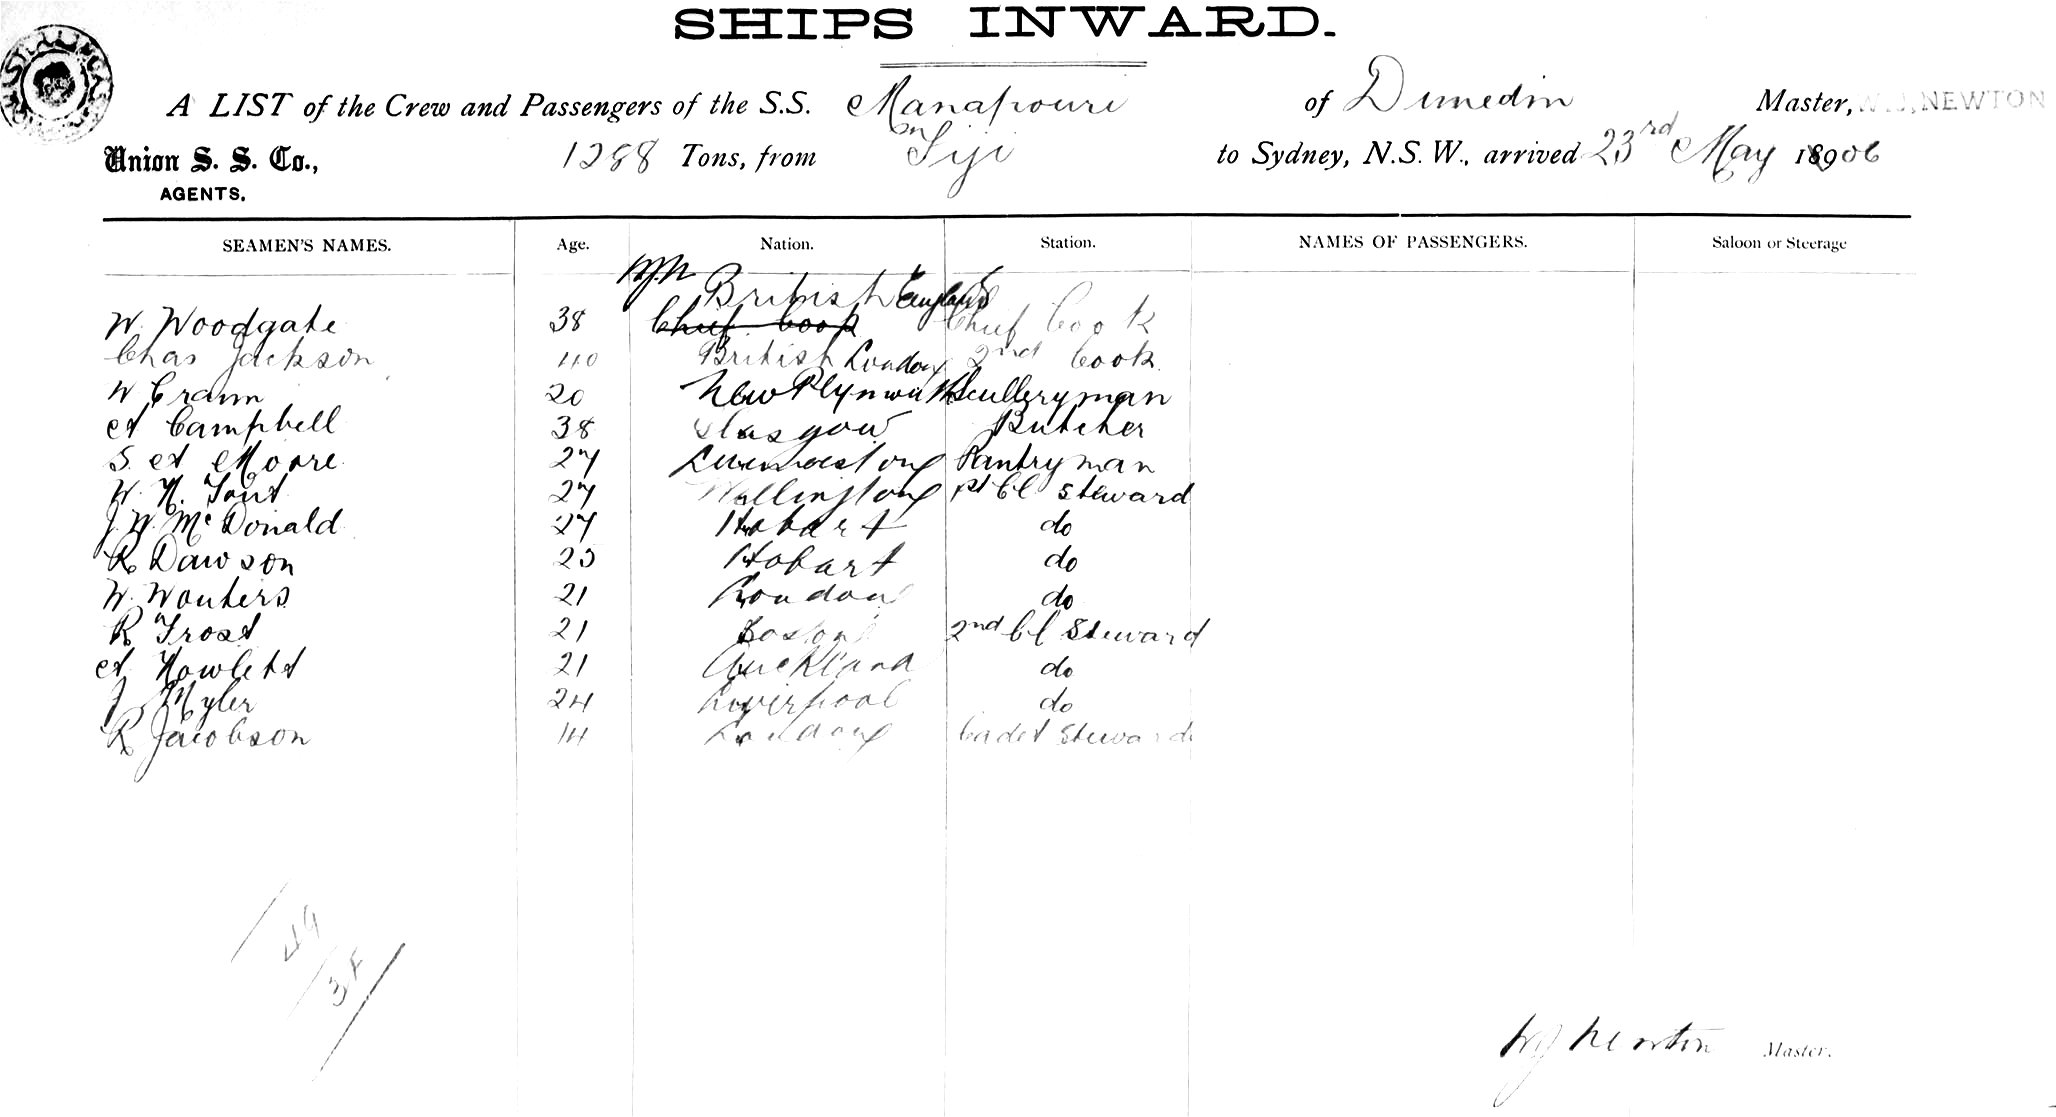 SHIPS INWARD.
A LIST of the Crew and Passengers of the S.S. Manapouri of Dunedin Master, W.J. NEWTON
Union S. S. Co., 1288 Tons, from Fiji to Sydney, N.S.W., arrived 23rd May 18906
AGENTS.
SEAMEN'S NAMES. Age. Nation. Station. NAMES OF PASSENGERS. Saloon or Steerage
WJN British England
W. Woodgate 38 Chief Cook Chief Cook
Chas Jackson 40 British London 2nd Cook
W Crann 20 New Plymouth Sculleryman
A Campbell 38 Glasgow Butcher
S. A Moore 27 Launceston Pantryman
W. H. 27 Wellington 1st Cl Steward
J. W. McDonald 27 Hobart do
R Dawson 25 Hobart do
W. Wouters 21 London do
R Frost 21 Boston 2nd Cl Steward
A Howlett 21 Auckland do
J Myler 24 Liverpool do
R Jacobson 14 London Cadet Steward
49
38
WJ Newton Master.